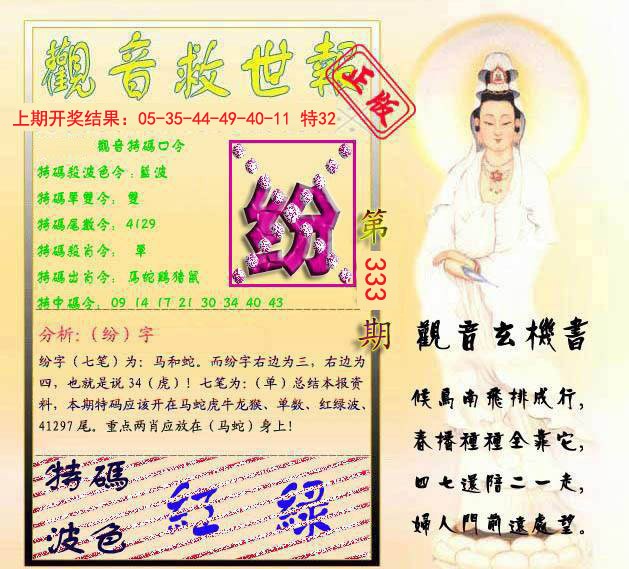 觀音救世報
正版
上期开奖结果：05-35-44-49-40-11 特32
觀音特碼口令
特碼殺波色令：藍波
特碼單雙令： 雙
特碼尾數令： 4129
特碼殺肖令： 單
特碼出肖令： 馬蛇鷄猪鼠
特中碼令： 09 14 17 21 30 34 40 43
纷
第
333
期
分析:（纷）字
纷字（七笔）为：马和蛇。而纷字右边为三，右边为
四，也就是说 34（虎）！七笔为:（单）总结本报资
料，本期特码应该开在马蛇虎牛龙猴、单数、红绿波、
41297 尾。重点两肖应放在（马蛇）身上！
特碼
波色
紅 綠
觀音玄機書
候鳥南飛排成行，
春播種種全靠它，
四七還陪二一走，
婦人門前遠處望。